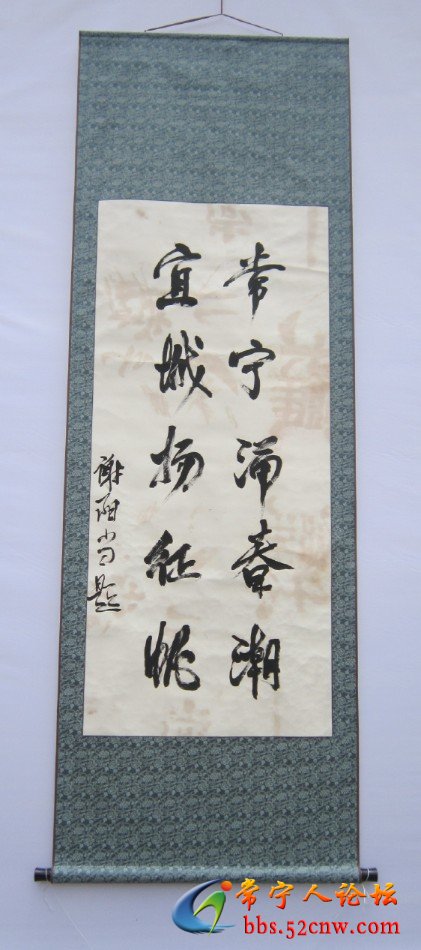 常宁涌春潮
宜城扬征帆
谢阳题
常宁人论坛
bbs.52cnw.com